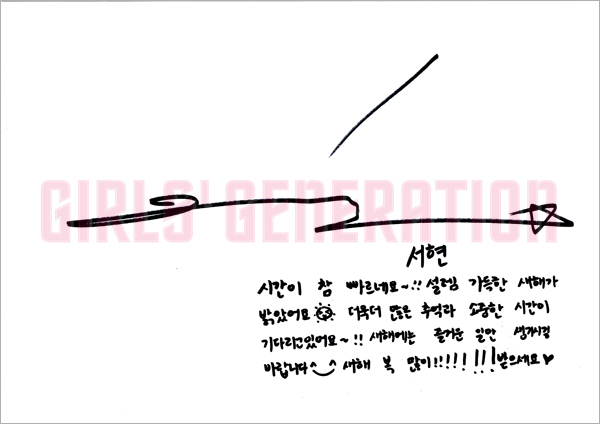 GIRLS' GENERATION
서현
시간이 참 빠르네요~!! 설렘 가득한 새해가
밝았어요 더욱더 많은 추억과 소중한 시간이
기다리고있어요~!! 새해에는 즐거운 일만 생기시길
바랍니다^_^ 새해 복 많이!!!!!!!!받으세요♥